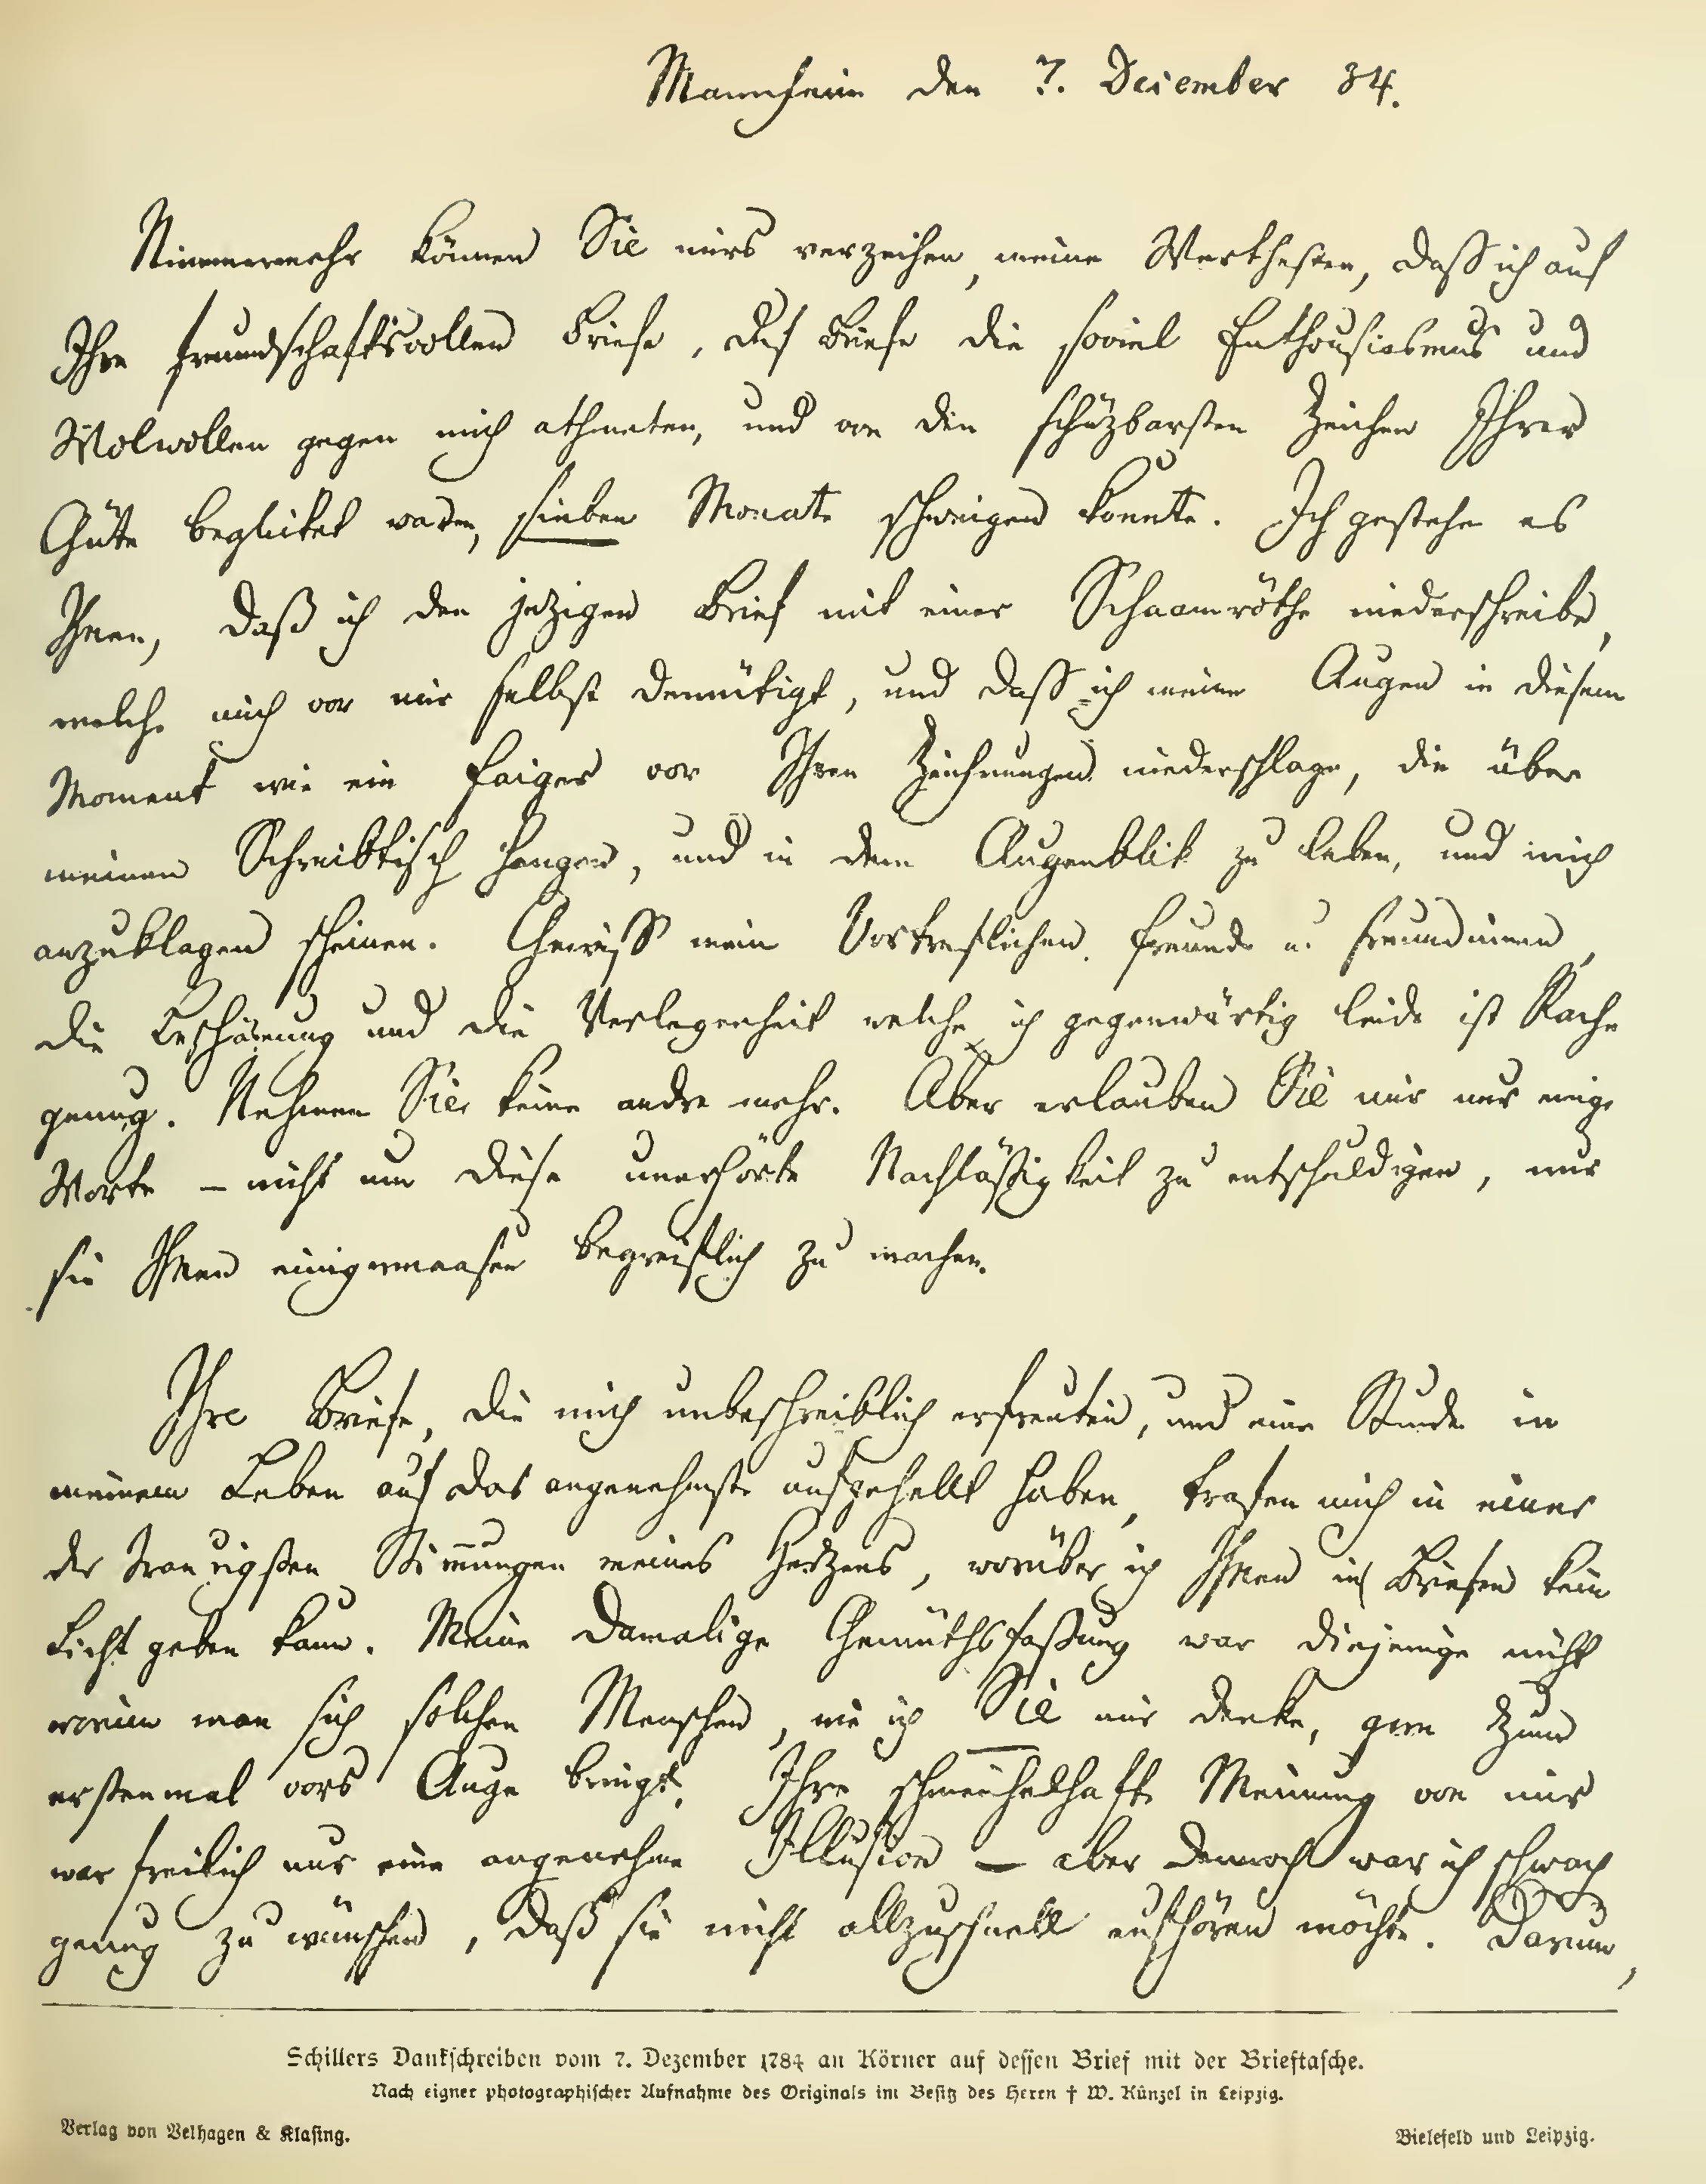 Mannheim den 7. December 84.
Nimmermehr können Sie mirs verzeihen, meine Werthesten, daß ich auf
Ihre freundschaftsvollen Briefe, auf Briefe die soviel Enthousiasmus und
Wolwollen gegen mich athmeten, und von den schäzbarsten Zeichen Ihrer
Güte begleitet waren, sieben Monate schweigen konnte. Ich gestehe es
Ihnen, daß ich den jezigen Brief mit einer Schaamröthe niederschreibe,
welche mich vor mir selbst demütigt, und daß ich meine Augen in diesem
Moment wie ein Faiger vor Ihren Zeichnungen niederschlage, die über
meinem Schreibtisch hangen, und in dem Augenblik zu leben, und mich
anzuklagen scheinen. Gewiß meine Vortreflichen Freunde u. Freundinnen,
die Beschämung und die Verlegenheit welche ich gegenwärtig leide ist Rache
genug. Nehmen Sie keine andre mehr. Aber erlauben Sie mir nur einige
Worte – nicht um diese unerhörte Nachläßigkeit zu entschuldigen, nur
sie Ihnen einigermaasen begreiflich zu machen.
Ihre Briefe, die mich unbeschreiblich erfreuten, und eine Stunde in
meinem Leben auf das angenehmste aufgehellt haben, trafen mich in einer
der traurigsten Stimmungen meines Herzens, worüber ich Ihnen in Briefen kein
Licht geben kann. Meine damalige Gemüthsfaßung war diejenige nicht
worinn man sich solchen Menschen, wie ich Sie mir denke, gern zum
erstenmal vors Auge bringt. Ihre schmeichelhafte Meinung von mir
war freilich nur eine angenehme Illusion – aber dennoch war ich schwach
genug zu wünschen, daß sie nicht allzuschnell aufhören möchte. Darum,
Schillers Dankschreiben vom 7. Dezember 1784 an Körner auf dessen Brief mit der Brieftasche.
Nach eigner photographischer Aufnahme des Originals im Besitz des Herrn † W. Künzel in Leipzig.
Verlag von Velhagen & Klasing.
Bielefeld und Leipzig.